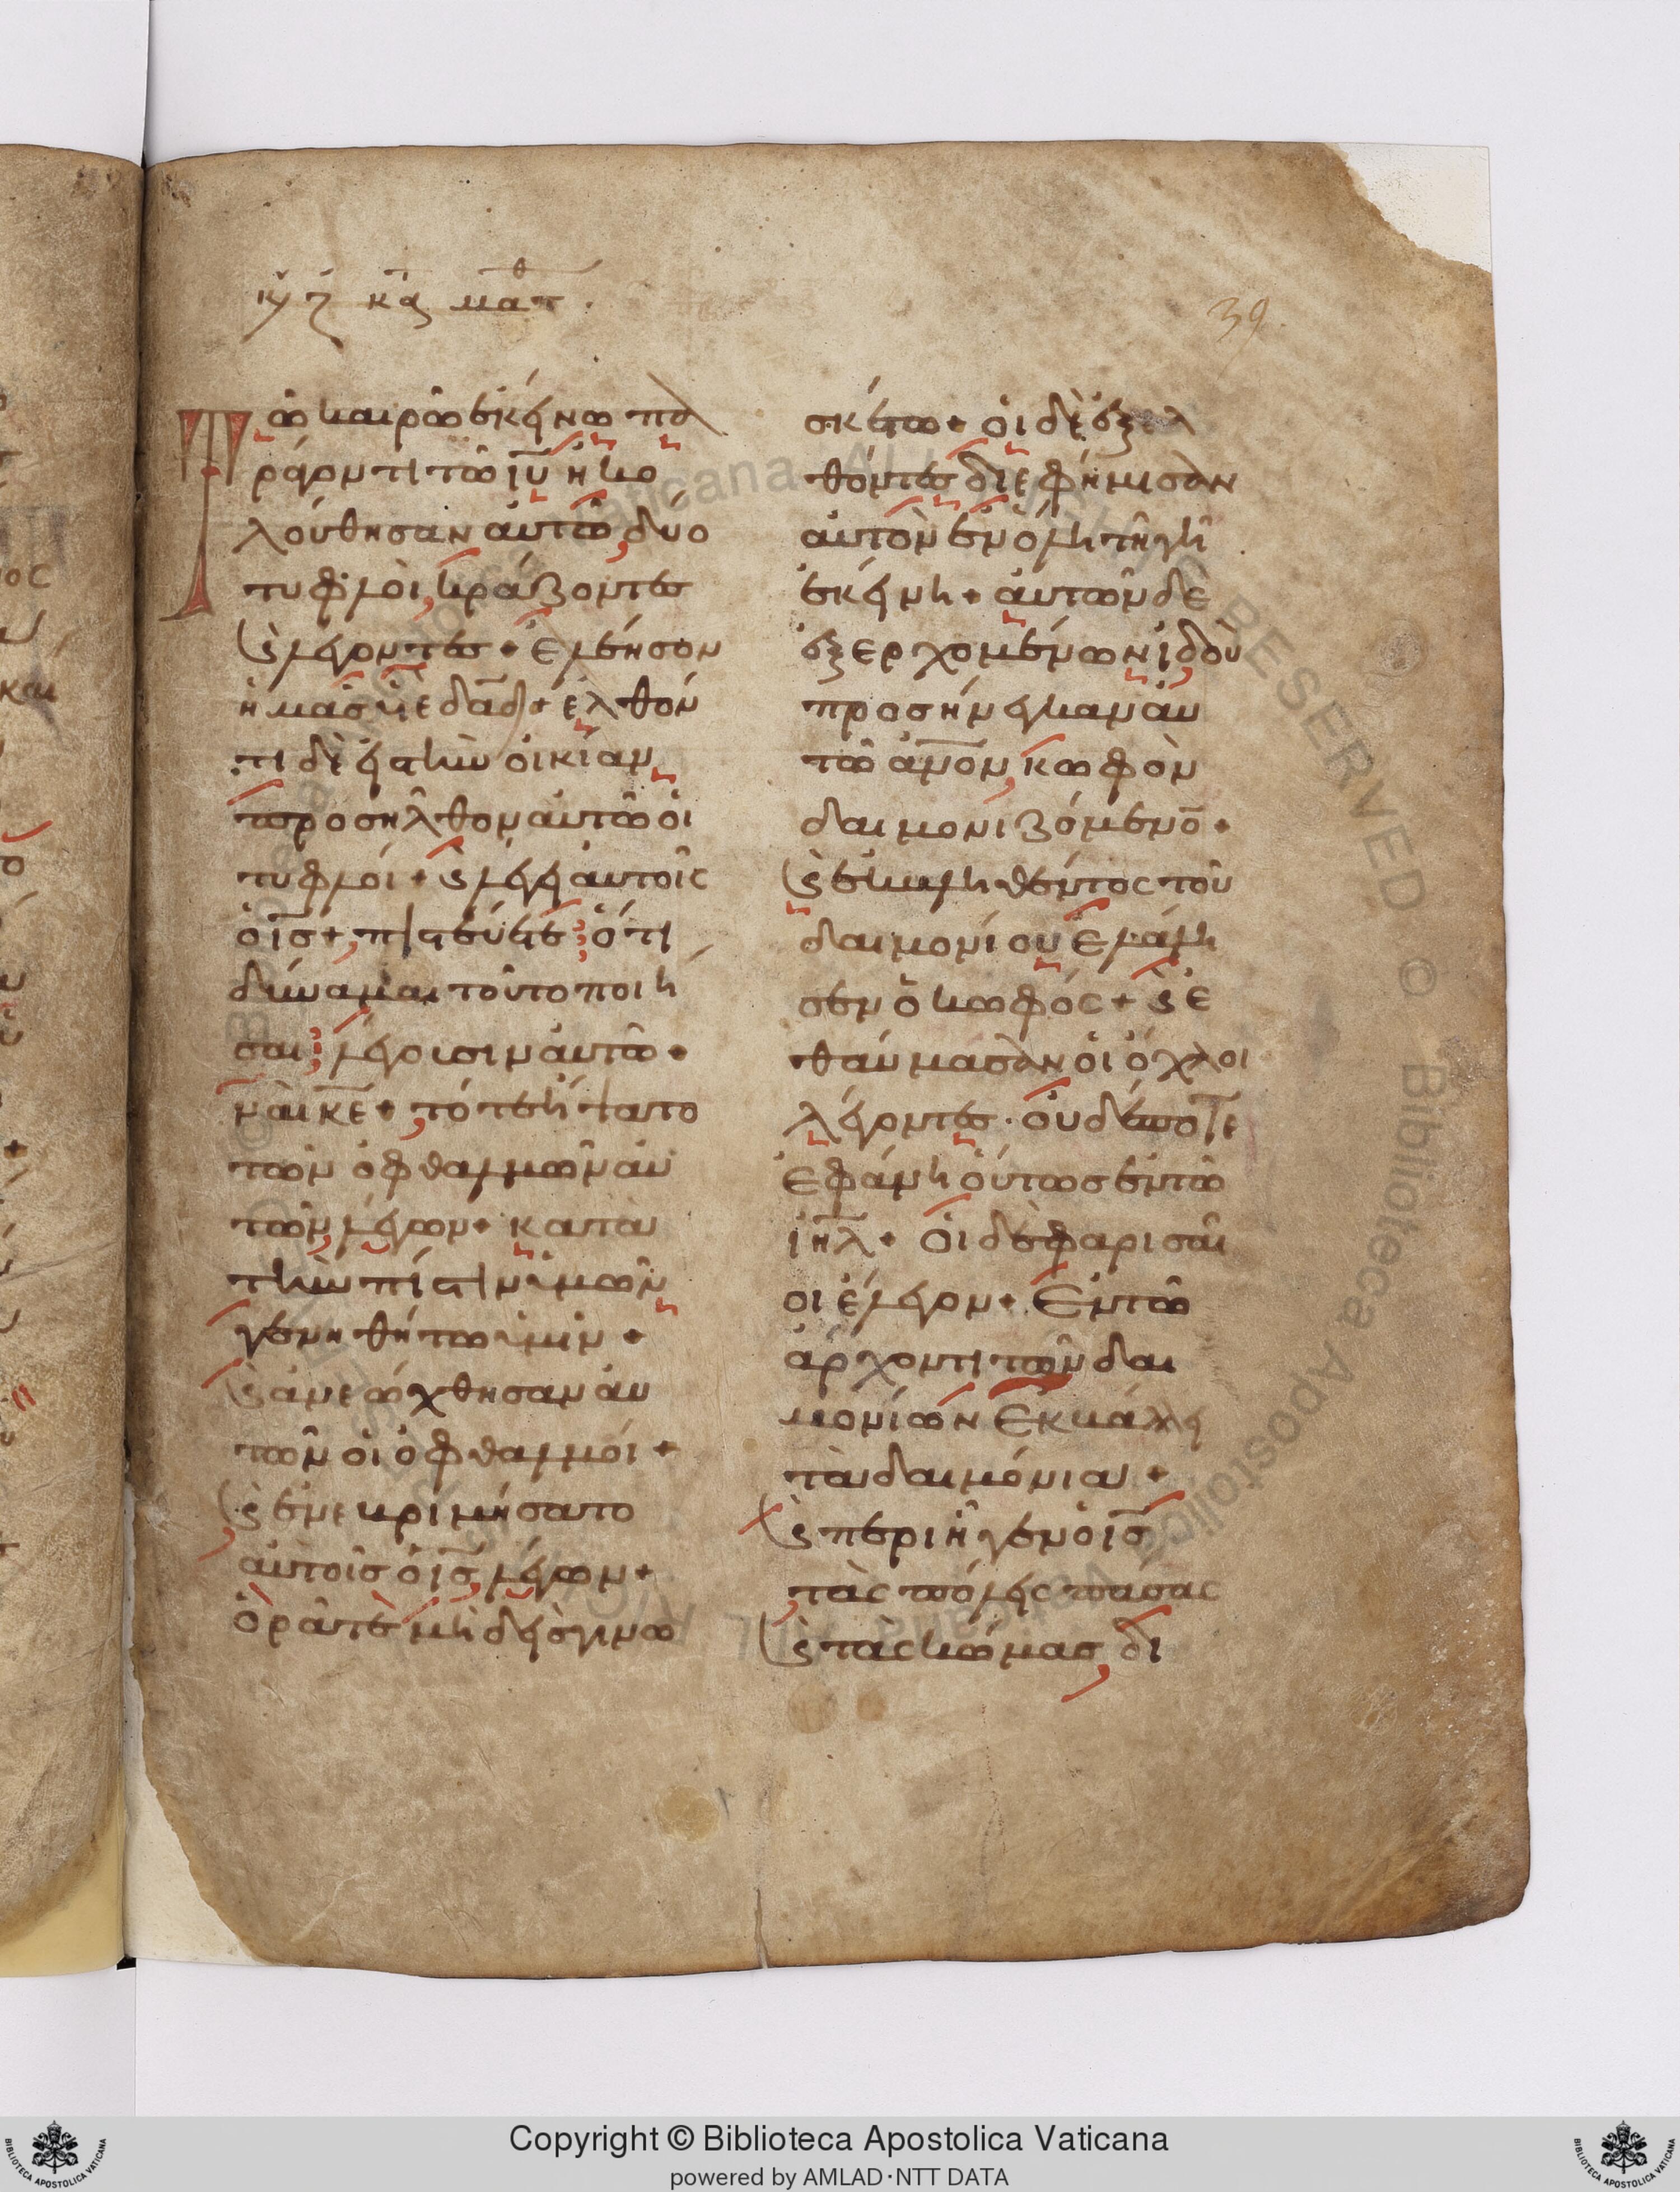 κυ ζ κα ματθ
39
Τῶ καιρῶ ἐκείνω πα
ράγοντι τῶ ιυ ἠκο
λούθησαν αὐτῶ δύο
τυφλοὶ κράζοντες
ϗ λέγοντες + ἐλέησον
ἡμᾶς υἱὲ δαδ + ἐλθόν
τι δὲ εἰς τὴν οἰκίαν
προσῆλθον αὐτῶ οἱ
τυφλοί + ϗ λέγει αὐτοῖς
ὁ ις + πιστεύετε ὅτι
δύναμαι τοῦτο ποιῆ
σαι; λέγουσιν αὐτῶ +
ναὶ κε + τότε ἥψατο
τῶν ὀφθαλμῶν αὐ
τῶν λέγων + κατὰ
τὴν πίστιν ὑμῶν
γενηθήτω ὑμῖν +
ϗ ἀνεώχθησαν αὐ
τῶν οἱ ὀφθαλμοί +
ϗ ἐνεβριμήσατο
αὐτοῖς ὁ ις λέγων +
ὁρᾶτε μηδεὶς γινω
σκέτω + οἱ δὲ ἐξελ
θόντες διεφήμισαν
αὐτὸν ἐν ὅλη τῆ γῆ
ἐκείνη + αὐτῶν δὲ
ἐξερχομένων ἰδοὺ
προσήνεγκαν αὐ
τῶ ανον κωφὸν
δαιμονιζόμενο +
ϗ ἐκβληθέντος τοῦ
δαιμονίου ἐλάλη
σεν ὁ κωφός + ϗ ἐ
θαύμασαν οἱ ὄχλοι
λέγοντες · οὐδέποτε
ἐφάνη οὕτως ἐν τῶ
ιηλ + οἱ δὲ φαρισαῖ
οι ἔλεγον + Ἐν τῶ
ἄρχοντι τῶν δαι
μονίων ἐκβάλλει
τὰ δαιμόνια +
ϗ περιῆγεν ὁ ις
τὰς πόλεις πάσας
ϗ τὰς κώμας δι
Copyright © Biblioteca Apostolica Vaticana
powered by AMLAD·NTT DATA